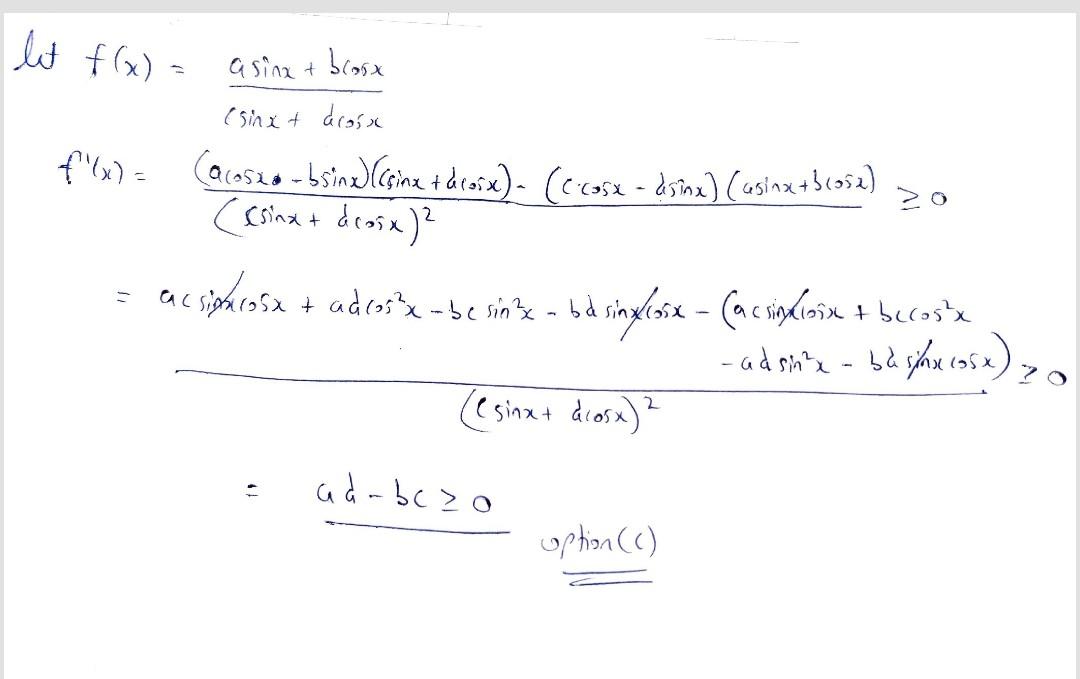 let f(x) = a sinx + bcosx
c sinx + dcosx
f'(x) = (acosx - bsinx)(csinx + dcosx) - (c cosx - dsinx) (asinx + bcosx) ≥ 0
(csinx + dcosx)²
= ac sinx cosx + ad cos²x - bc sin²x - bd sinx cosx - (ac sinx cosx + bc cos²x
- ad sin²x - bd sinx cosx) ≥ 0
(c sinx + dcosx)²
= ad - bc ≥ 0
option (c)